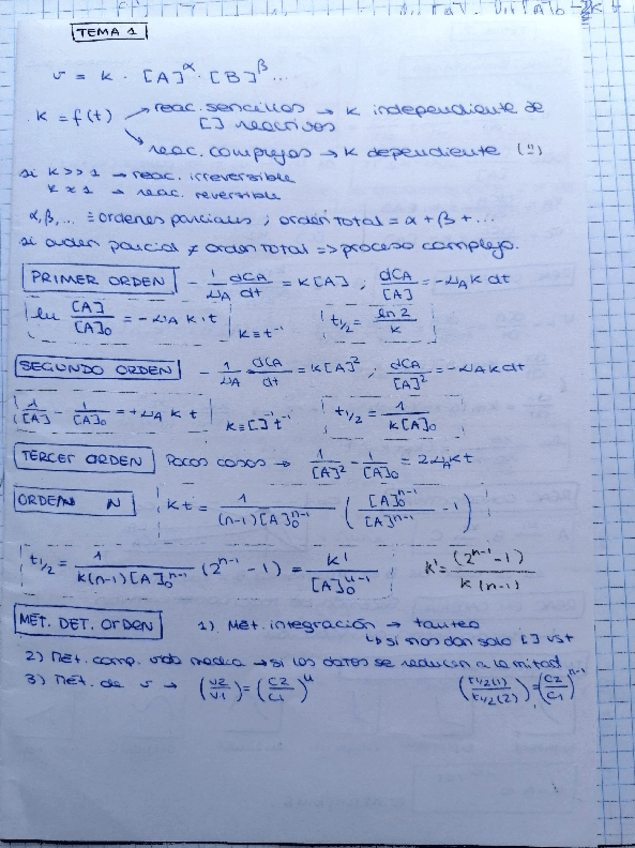 TEMA 1
v = k · [A]^α · [B]^β ...
k = f(t) → reac. sencillas → k independiente de
[] reactivos
→ reac. complejas → k dependiente (")
si k >> 1 → reac. irreversible
k ≈ 1 → reac. reversible
α, β, ... ≡ ordenes parciales ; orden Total = α + β + ...
si orden parcial ≠ orden Total => proceso complejo.
PRIMER ORDEN - 1/νA dCA/dt = k[A] ; dCA/[A] = -νA k dt
ln [A]/[A]₀ = -νA k · t k ≡ t⁻¹ t₁/₂ = ln 2/k
SEGUNDO ORDEN - 1/νA dCA/dt = k[A]² ; dCA/[A]² = -νA k dt
1/[A] - 1/[A]₀ = +νA k t k ≡ []⁻¹t⁻¹ t₁/₂ = 1/k[A]₀
TERCER ORDEN Pocos casos → 1/[A]² - 1/[A]₀ = 2νA k t
ORDEN N kt = 1/(n-1)[A]₀ⁿ⁻¹ ([A]₀ⁿ⁻¹/[A]ⁿ⁻¹ - 1)
t₁/₂ = 1/k(n-1)[A]₀ⁿ⁻¹ (2ⁿ⁻¹ - 1) = k'/[A]₀ⁿ⁻¹ k' = (2ⁿ⁻¹-1)/k(n-1)
MET. DET. ORDEN 1) Met. integración → tanteo
↳ si nos dan solo [] vs t
2) Met. comp. vida media → si los datos se reducen a la mitad
3) Met. de v → (v2/v1) = (c2/c1)ⁿ (t1/2(1)/t1/2(2)) = (c2/c1)ⁿ⁻¹